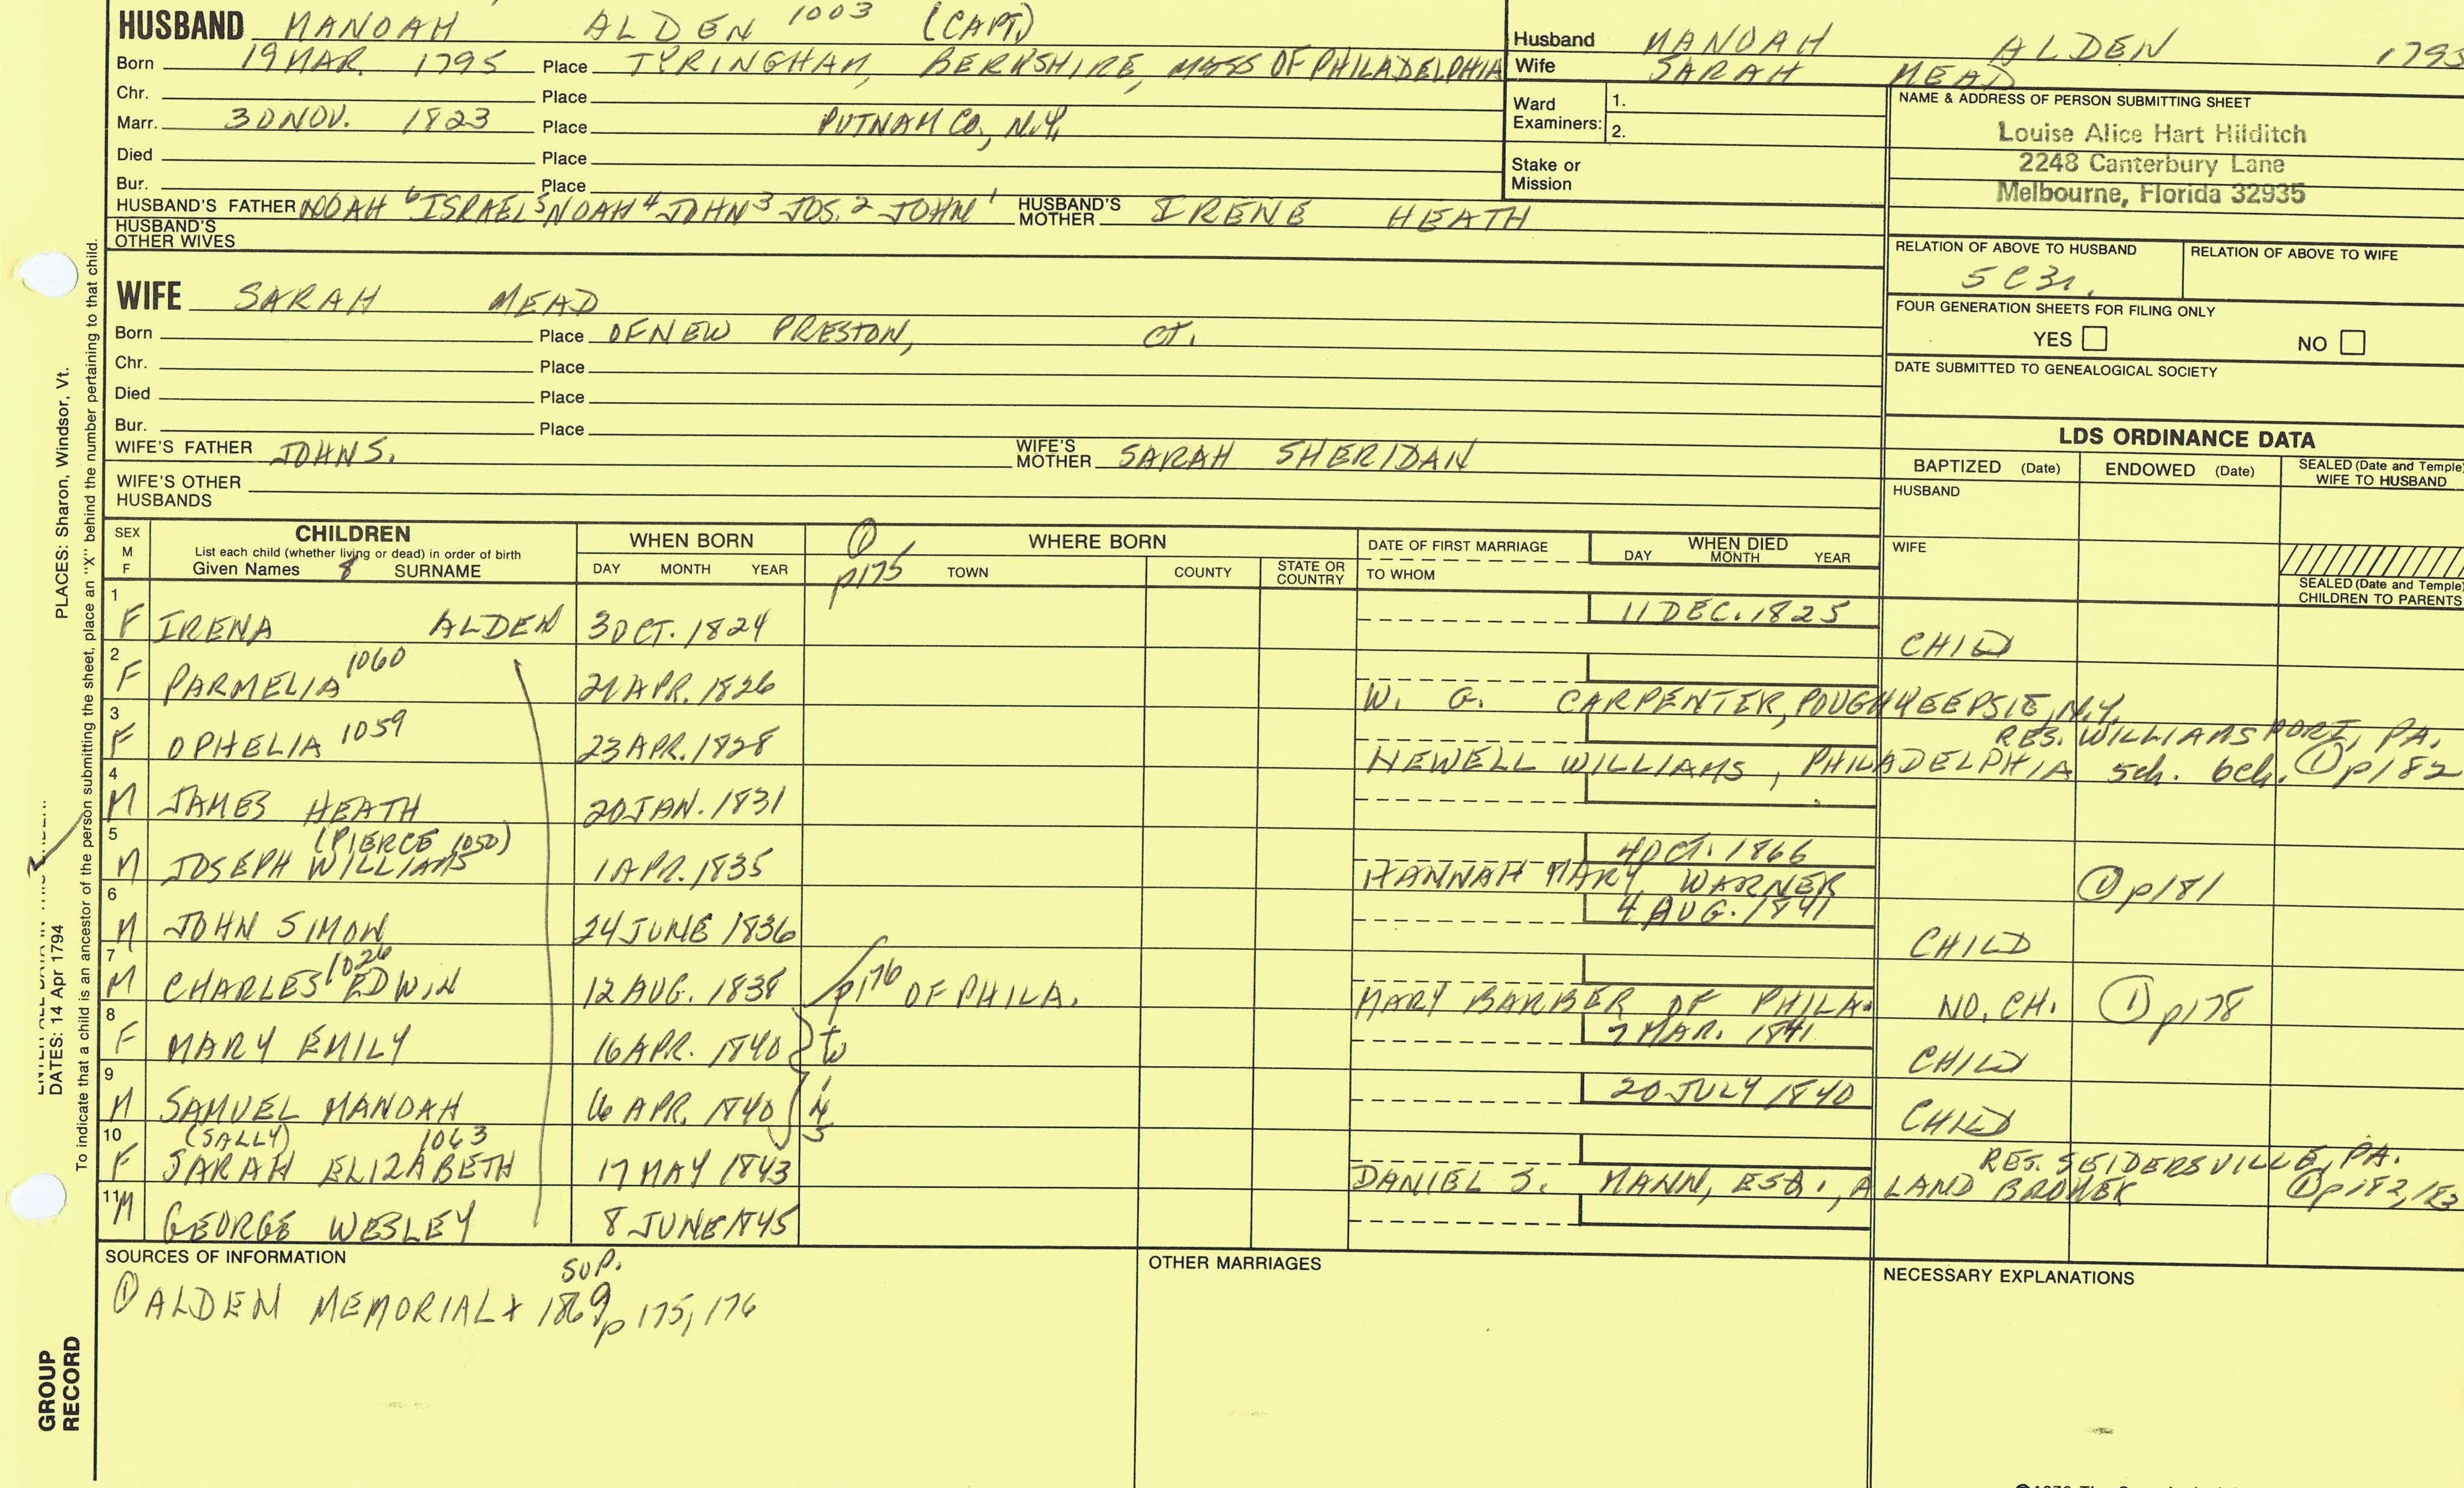 HUSBAND MANOAH ALDEN 1003 (CAPT)
Born 19 MAR. 1795 Place TYRINGHAM, BERKSHIRE, MASS OF PHILADELPHIA
Chr. Place
Marr. 30 NOV. 1823 Place PUTNAM CO., N.Y.
Died Place
Bur. Place
HUSBAND'S FATHER NOAH 6 ISRAEL 5 NOAH 4 JOHN 3 JOS. 2 JOHN 1 HUSBAND'S MOTHER IRENE HEATH
HUSBAND'S OTHER WIVES
Husband MANOAH ALDEN 1795
Wife SARAH MEAD
Ward Examiners: 1.
2.
Stake or Mission
NAME & ADDRESS OF PERSON SUBMITTING SHEET
Louise Alice Hart Hilditch
2248 Canterbury Lane
Melbourne, Florida 32935
RELATION OF ABOVE TO HUSBAND RELATION OF ABOVE TO WIFE
5C3r.
FOUR GENERATION SHEETS FOR FILING ONLY
YES NO
DATE SUBMITTED TO GENEALOGICAL SOCIETY
WIFE SARAH MEAD
Born Place OF NEW PRESTON, CT.
Chr. Place
Died Place
Bur. Place
WIFE'S FATHER JOHN S. WIFE'S MOTHER SARAH SHERIDAN
WIFE'S OTHER HUSBANDS
LDS ORDINANCE DATA
BAPTIZED (Date) ENDOWED (Date) SEALED (Date and Temple) WIFE TO HUSBAND
HUSBAND
WIFE
SEALED (Date and Temple) CHILDREN TO PARENTS
SEX M F
CHILDREN
List each child (whether living or dead) in order of birth
Given Names 8 SURNAME
WHEN BORN
DAY MONTH YEAR
① p175
WHERE BORN
TOWN COUNTY STATE OR COUNTRY
DATE OF FIRST MARRIAGE
TO WHOM
WHEN DIED
DAY MONTH YEAR
1 F IRENA ALDEN 3 OCT. 1824 11 DEC. 1825 CHILD
2 F PARMELIA 1060 21 APR. 1826 W. G. CARPENTER, POUGHKEEPSIE, N.Y.
3 F OPHELIA 1059 23 APR. 1828 NEWELL WILLIAMS, PHILADELPHIA sch. tch. ① p182
RES. WILLIAMSPORT, PA.
4 M JAMES HEATH 20 JAN. 1831
5 M JOSEPH WILLIAMS (PIERCE 1050) 1 APR. 1835 4 OCT. 1866 HANNAH MARY WARNER ① p181
6 M JOHN SIMON 24 JUNE 1836 4 AUG. 1841 CHILD
7 M CHARLES 1026 EDWIN 12 AUG. 1838 p176 OF PHILA. MARY BARBER OF PHILA. NO. CH. ① p178
8 F MARY EMILY 16 APR. 1840 twins 7 MAR. 1841 CHILD
9 M SAMUEL MANOAH 16 APR. 1840 20 JULY 1840 CHILD
10 F (SALLY) SARAH ELIZABETH 1063 17 MAY 1843 DANIEL S. MANN, ESQ., A LAND BROKER ① p182, 183
RES. SEIDERSVILLE, PA.
11 M GEORGE WESLEY 8 JUNE 1845
SOURCES OF INFORMATION
① ALDEN MEMORIAL + SUP. 1869 p 175, 176
OTHER MARRIAGES
NECESSARY EXPLANATIONS
PLACES: Sharon, Windsor, Vt.
DATES: 14 Apr 1794
To indicate that a child is an ancestor of the person submitting the sheet, place an "X" behind the number pertaining to that child.
GROUP RECORD